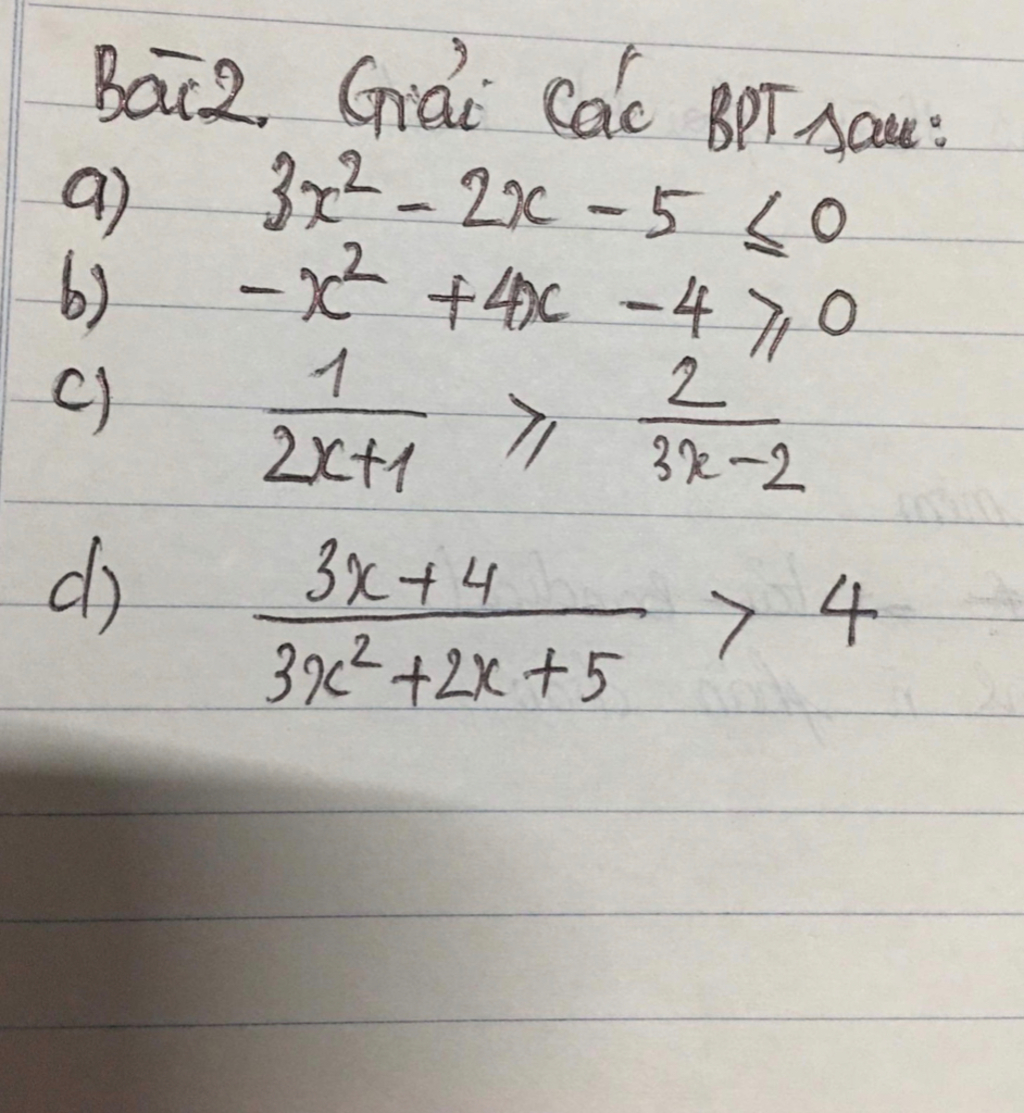 Bài 2. Giải các BPT sau:
a) 3x² - 2x - 5 ≤ 0
b) -x² + 4x - 4 ≥ 0
c) 1/(2x+1) ≥ 2/(3x-2)
d) (3x+4)/(3x²+2x+5) > 4